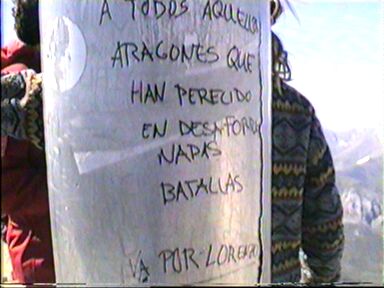 A TODOS AQUELLOS
ARAGONES QUE
HAN PERECIDO
EN DESAFORTU
NADAS
BATALLAS
VA POR LORENZO